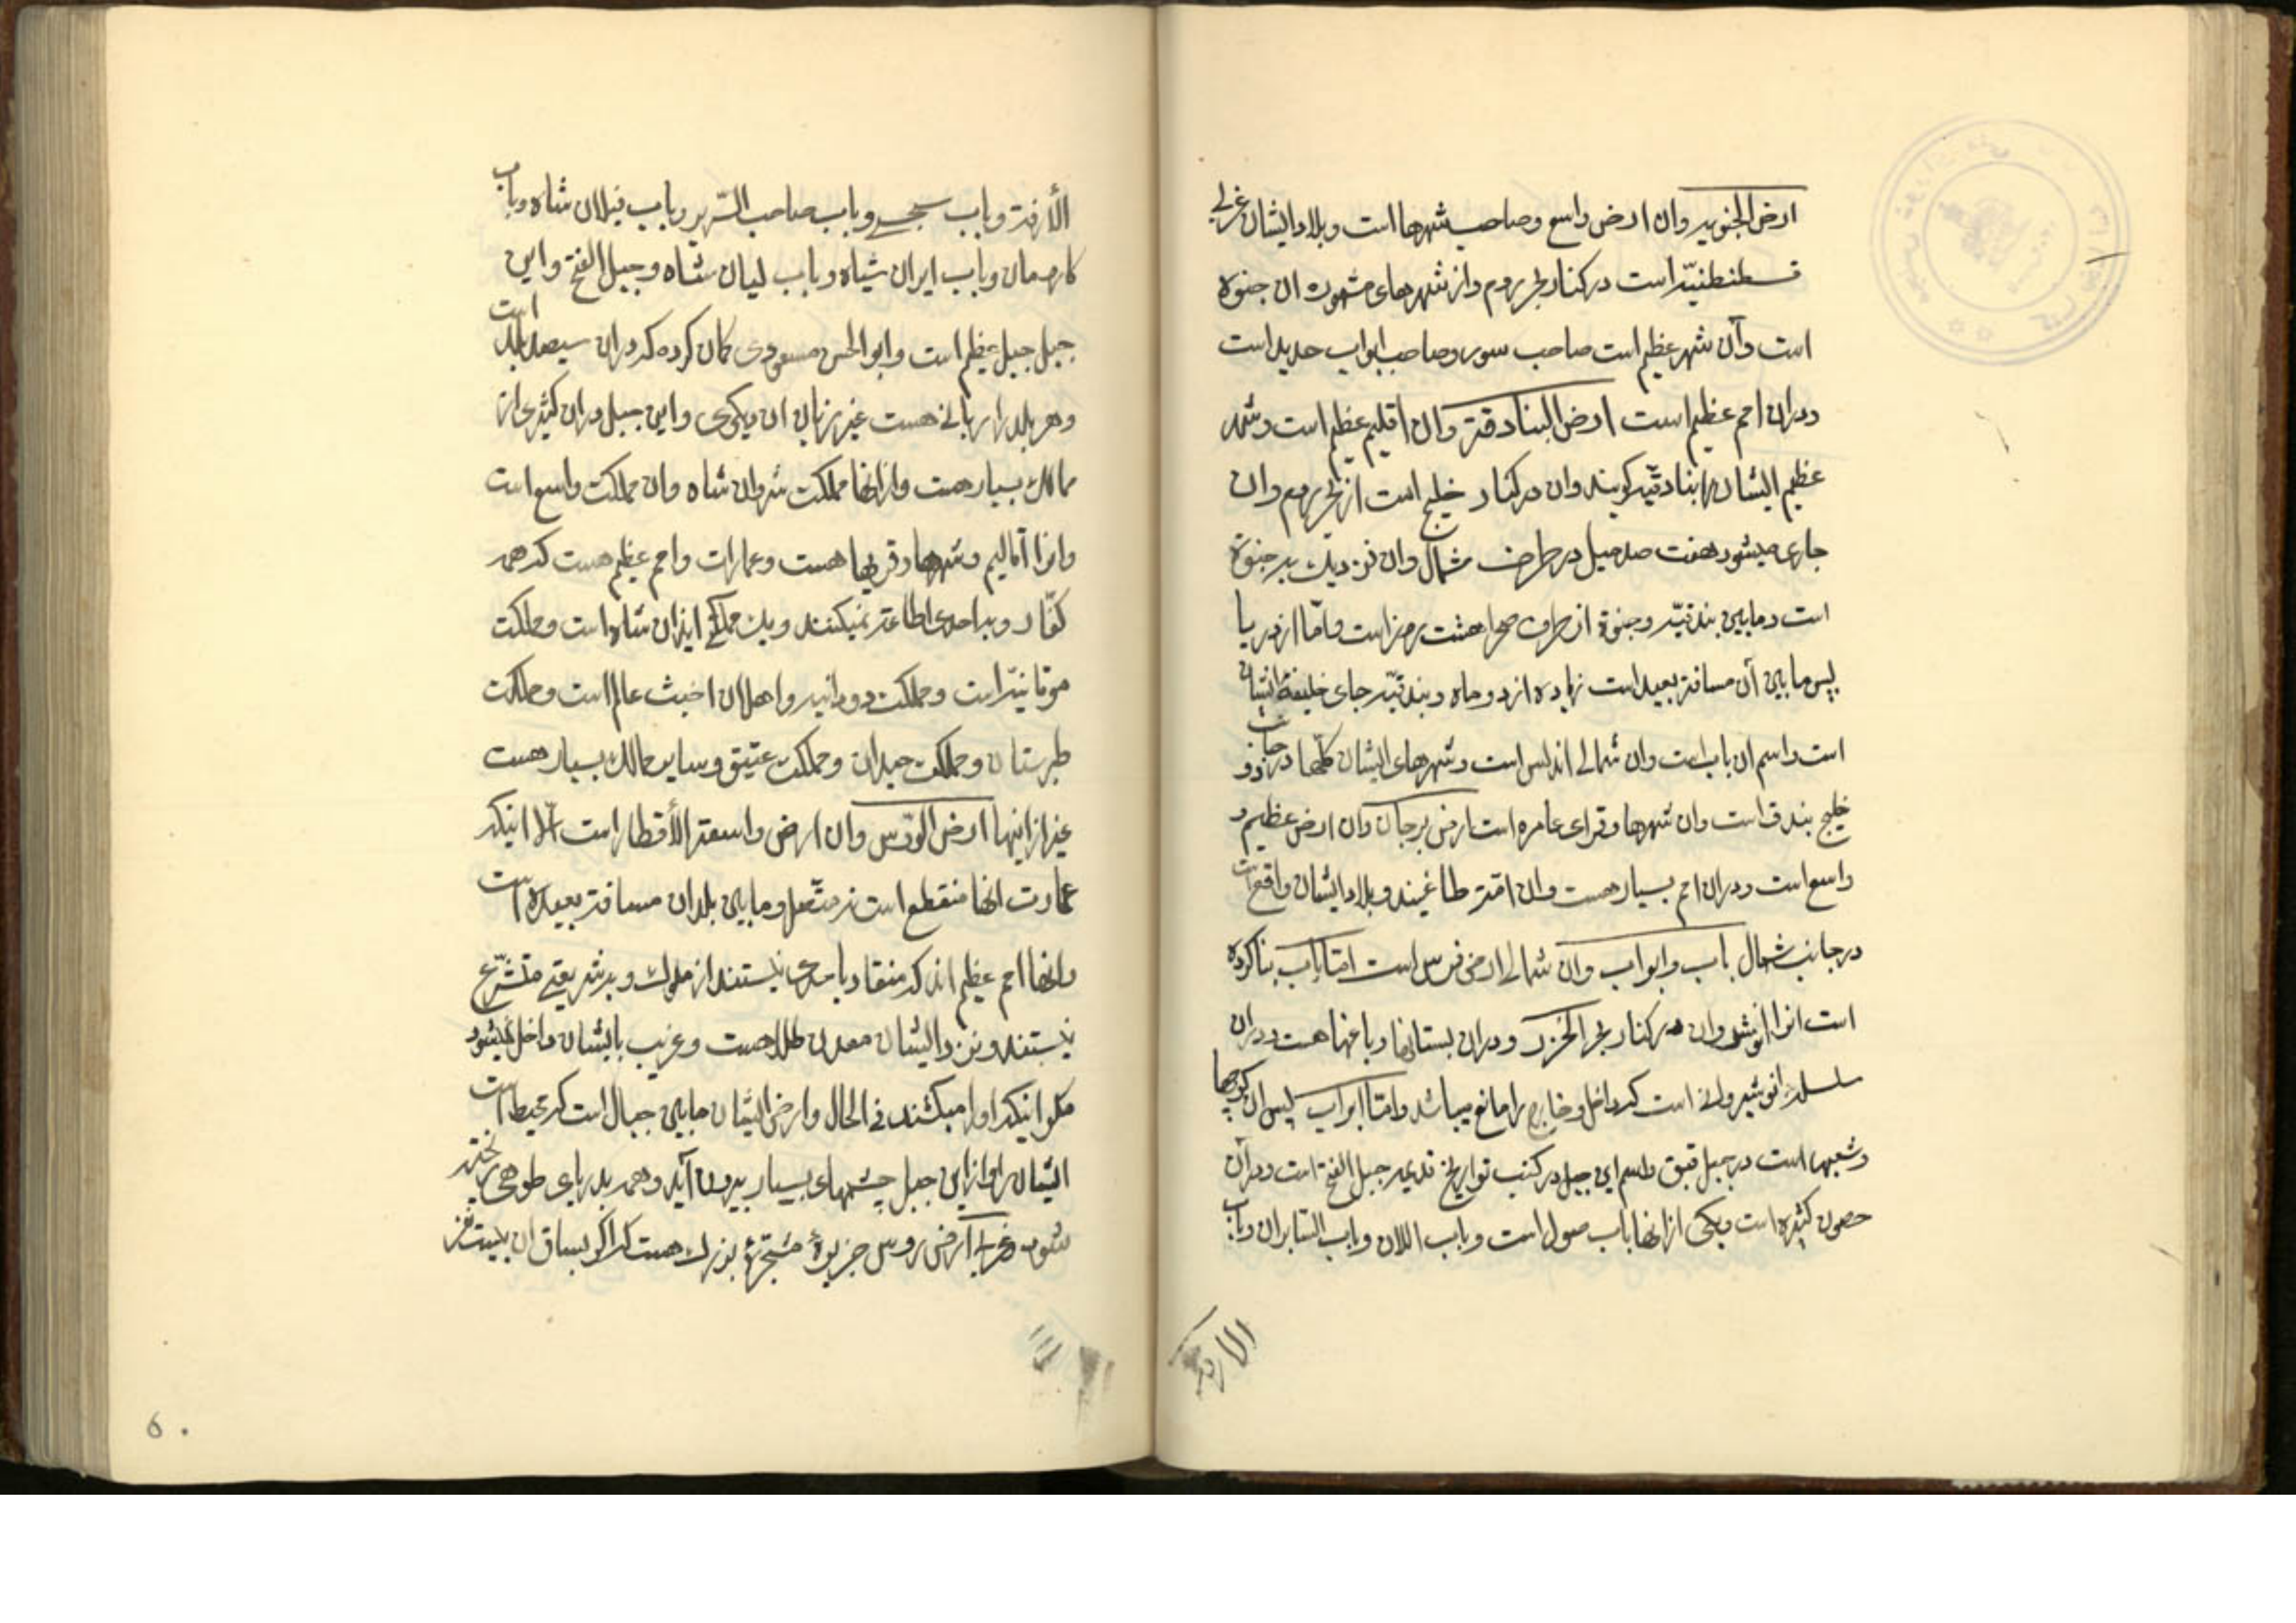 ارض الجنویه وان ارض واسع وصاحب شهرها است وبلاد ایشان غربی
قسطنطنیّه است در کنار بحر روم واز شهرهای مشهوره ان جنوة
است وآن شهر عظیم است صاحب سور وصاحب ابواب حدید است
ودران امم عظیم است ارض البنادقة وان اقلیم عظیم است وشهر
عظیم ایشان را بنادقیّه کویند وان در کنار خلیج است از بحر روم وان
جاری میشود هفت صد میل در طرف شمال وان نزدیک بر جنوة
است ومابین بندقیّه وجنوة از طرف صحرا هشت روز است وامّا از دریا
پس مابین آن مسافة بعید است زیاده از دو ماه وبندقیّه جای خلیفهٔ ایشان
است واسم ان باب است وان شمالی اندلس است وشهرهای ایشان کلّها در جانب دو
خلیج بندق است وان شهرها وقرای عامره است ارض برجان وان ارض عظیم و
واسع است ودران امم بسیار هست وان امّة طاغیند وبلاد ایشان واقع است
در جانب شمال باب وابواب وان شمالی ارض فرس است امّا باب بنا کرده
است انرا انوشیروان در کنار بحر الخزر ودران بستانها وباغها هست ودران
سلسله انوشیروانی است که داخل وخارج را مانع میباشد وامّا ابواب پس ان کوچها
وشعبها است در جبل قبق واسم این جبل در کتب تواریخ قدیمه جبل الفتح است ودران
حصون کثیره است ویکی از انها باب صول است وباب اللان وباب السّابران وباب
الأزقة وباب سجسجی وباب صاحب السّریر وباب فیلان شاه وباب
کارومان وباب ایران شاه وباب لیان شاه وجبل الفتح واین
جبل جبل عظیم است وابو الحسن مسعودی کمان کرده که دران سیصد بلد است
وهر بلد را زبانی هست غیر زبان ان دیکری واین جبل دران کثیری از
ممالک بسیار هست واز انها مملکت شروان شاه وان مملکت واسع است
وانرا اقالیم وشهرها وقریها هست وعمارات وامم عظیم هست که همه
کفّار وبه احدی اطاعة نمیکنند ویک مملکتی ایذان شاه است ومملکت
موقانیّه است ومملکت دودانیه واهل ان اخبث عالم است ومملکت
طبرستان ومملکت حیدان ومملکت عتیق وسایر ممالک بسیار هست
غیر از اینها ارض الودّس وان ارض واسعة الأقطار است الّا اینکه
عمارت انها منقطع است نه متّصل ومابین بلدان مسافة بعیده است
وانها امم عظیم اند که منقاد باحدی نیستند از ملوک وبه شریعتی متشرّع
نیستند ونزد ایشان معدن طلا هست وغریب بایشان داخل نمیشود
مکر اینکه اورا میکشند فی الحال وارض ایشان مابین جبال است که محیط است
ایشان را واز این جبل چشمهای بسیار بیرون آید وهمه بدریای طوهی ریخته
شود وغربی ارض روس جزیرهٔ مشجّرهٔ بزرک هست که اکر بساق ان بیست نفر
الأزقة